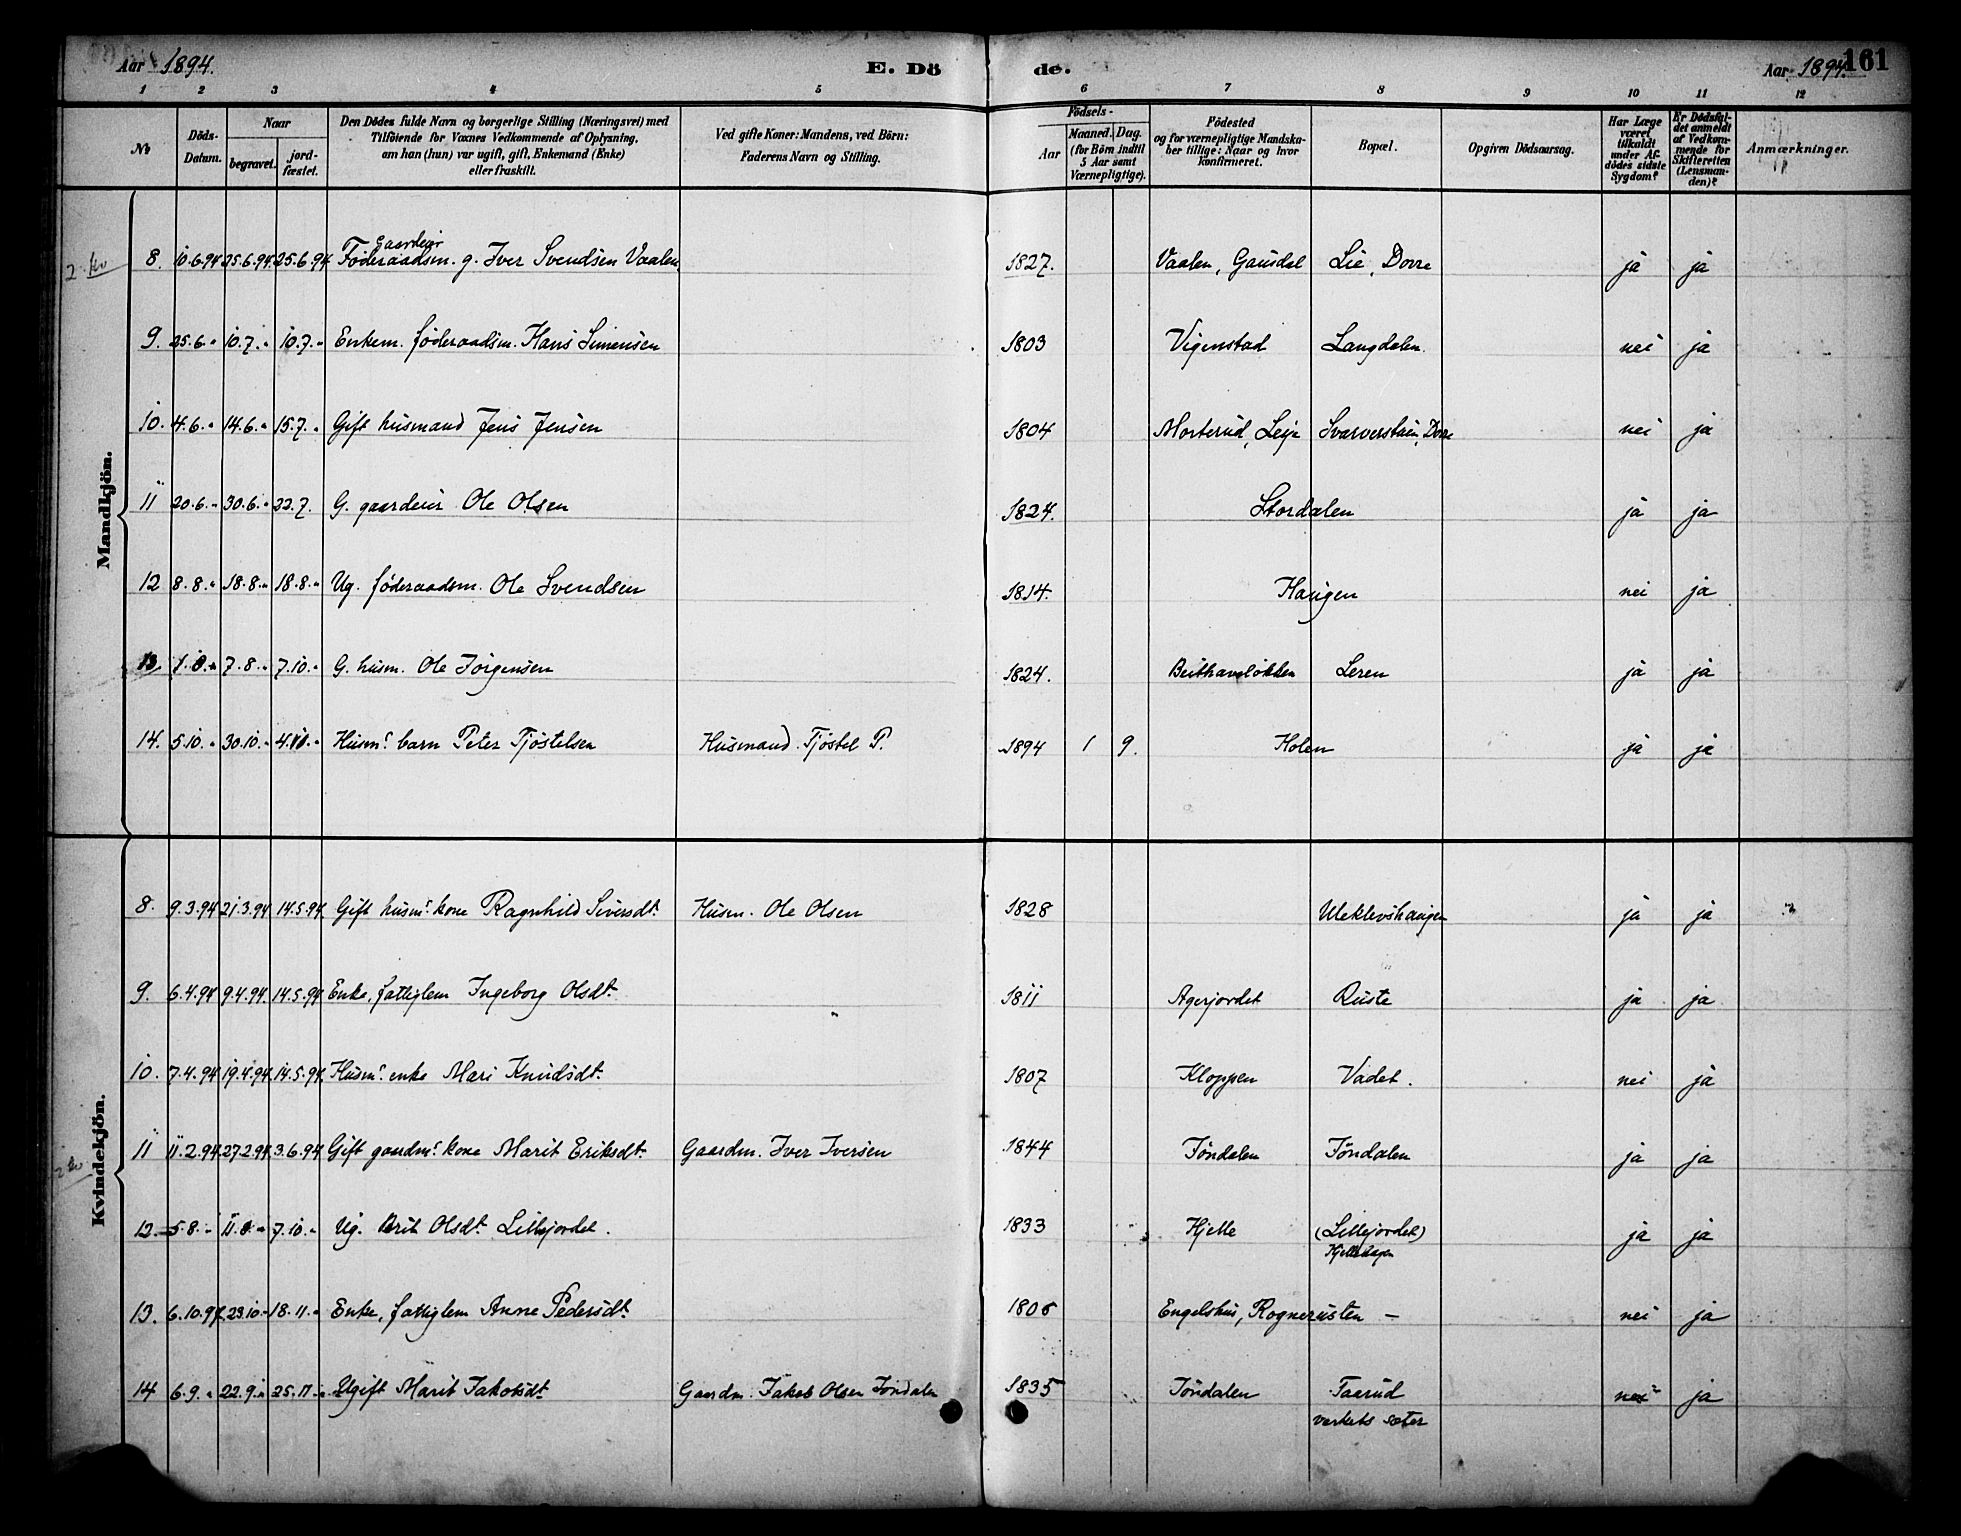 Aar 1894. E. Dö de. Aar 1894. 161
1 2 3 4 5 6 7 8 9 10 11 12
No
Döds-Datum.
Naar
begravet.
jord-fæstet.
Den Dödes fulde Navn og borgerlige Stilling (Næringsvei) med
Tilföiende for Voxnes Vedkommende af Oplysning,
om han (hun) var ugift, gift, Enkemand (Enke)
eller fraskilt.
Ved gifte Koner: Mandens, ved Börn:
Faderens Navn og Stilling.
Födsels-
Aar
Maaned. Dag.
(for Börn indtil
5 Aar samt
Værnepligtige).
Födested
og for værnepligtige Mandska-
ber tillige: Naar og hvor
konfirmeret.
Bopæl.
Opgiven Dödsaarsag.
Har Læge
været
tilkaldt
under Af-
dödes sidste
Sygdom?
Er Dödsfal-
det anmeldt
af Vedkom-
mende for
Skifteretten
(Lensman-
den)?
Anmærkninger.
Mandkjön.
Gaardeier
8. 10.6.94 25.6.94 25.6.94 Föderaadsm. g. Iver Svendsen Vaalen 1827. Vaalen, Gausdal Lie, Dovre ja ja
9. 25.6.„ 10.7.„ 10.7.„ Enkem. föderaadsm. Hans Simensen 1803 Vigenstad Langdalen. nei ja
10. 4.6.„ 14.6.„ 15.7.„ Gift husmand Jens Jensen 1804 Morterud, Leije Svarverstuen, Dovre nei ja
11 20.6.„ 30.6.„ 22.7. G. gaardeier Ole Olsen 1824. Stordalen ja ja
12 8.8.„ 18.8.„ 18.8.„ Ug. föderaadsm. Ole Svendsen 1814. Haugen nei ja
13. 7.8.„ 7.10.„ G. husm. Ole Jörgensen 1824. Leren ja ja
14. 5.10.„ 30.10.„ Husms barn Peter Tjöstelsen Husmand Tjöstel P. 1894 1 9. Holen ja ja
Kvindekjön.
8. 9.3.94 21.3.94 14.5.94 Gift husms kone Ragnhild Siversdt. Husm. Ole Olsen 1828 Uleklevshaugen ja ja
9. 6.4.94 9.4.94 14.5.94 Enke, fattiglem Ingeborg Olsdt. 1811 Agerjordet Ruste ja ja
10. 7.4.94 19.4.94 14.5.94 Husms enke Mari Knudsdt. 1807 Kloppen Vadet. nei ja
11 11.2.94 27.2.94 3.6.94 Gift gaardms kone Marit Eriksdt. Gaardm. Iver Iversen 1844 Jöndalen Jöndalen ja ja
12. 5.8.„ 11.8.„ 7.10.„ Ug. Brit Olsdt. Lillejordet. 1833 Hjelle (Lillejordet) ja ja
13. 6.10.94 23.10.„ 18.11.„ Enke, fattiglem Anne Pedersdt. 1806 Engelshus, Rognerusten – nei ja
14 6.9.„ 22.9.„ 25.11.„ Ugift Marit Jakobsdt. Gaardm. Jakob Olsen Jöndalen 1835 Jöndalen Taarud nei ja
verkets sæter